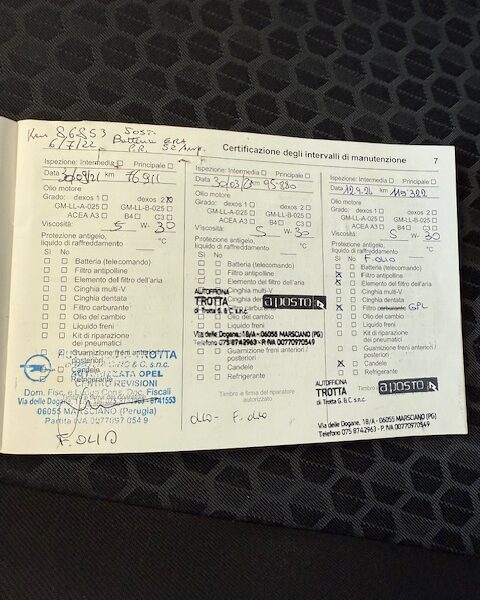 Km 86853
6/7/22
Sost.
Batteria
Certificazione degli intervalli di manutenzione 7
Ispezione: Intermedia Principale
Data 30/09/21 km 76911
Olio motore
Grado: dexos 1 dexos 2
GM-LL-A-025 GM-LL-B-025
ACEA A3 B4 C3
Viscosità: 5 W- 30
Protezione antigelo,
liquido di raffreddamento °C
Sì No
Batteria (telecomando)
Filtro antipolline
Elemento del filtro dell'aria
Cinghia multi-V
Cinghia dentata
Filtro carburante
Olio del cambio
Liquido freni
Kit di riparazione
dei pneumatici
Guarnizione freni anteriori /
posteriori
Candele
Refrigerante
TROTTA
& C. s.n.c.
OPEL
CENTRO REVISIONI
Dom. Fisc. e Luogo Cons. Doc. Fiscali
Via delle Dogane,
06055 MARSCIANO (Perugia)
Partita IVA 0077097 054 9
F. OLIO
Ispezione: Intermedia Principale
Data km 95.880
Olio motore
Grado: dexos 1 dexos 2
GM-LL-A-025 GM-LL-B-025
ACEA A3 B4 C3
Viscosità: 5 W- 30
Protezione antigelo,
liquido di raffreddamento °C
Sì No
Batteria (telecomando)
Filtro antipolline
Elemento del filtro dell'aria
Cinghia multi-V
AUTOFFICINA
TROTTA
di Trotta G. & C. snc.
a posto
Via delle Dogane, 18/A - 06055 MARSCIANO (PG)
Telefono 075 8742963 - P. IVA 00770970549
Guarnizione freni anteriori /
posteriori
Candele
Refrigerante
Timbro e firma del riparatore
autorizzato
olio - F. olio
Ispezione: Intermedia Principale
Data 12.9.24 km 119322
Olio motore
Grado: dexos 1 dexos 2
GM-LL-A-025 GM-LL-B-025
ACEA A3 B4 C3
Viscosità: 5 W- 30
Protezione antigelo,
liquido di raffreddamento °C
Sì No F olio
Batteria (telecomando)
Filtro antipolline
Elemento del filtro dell'aria
Cinghia multi-V
Cinghia dentata
Filtro carburante GPL
Olio del cambio
Liquido freni
Kit di riparazione
dei pneumatici
Guarnizione freni anteriori /
posteriori
Candele
Refrigerante
AUTOFFICINA
TROTTA
di Trotta G. & C. snc.
Timbro
a posto
Via delle Dogane, 18/A - 06055 MARSCIANO (PG)
Telefono 075 8742963 - P. IVA 00770970549